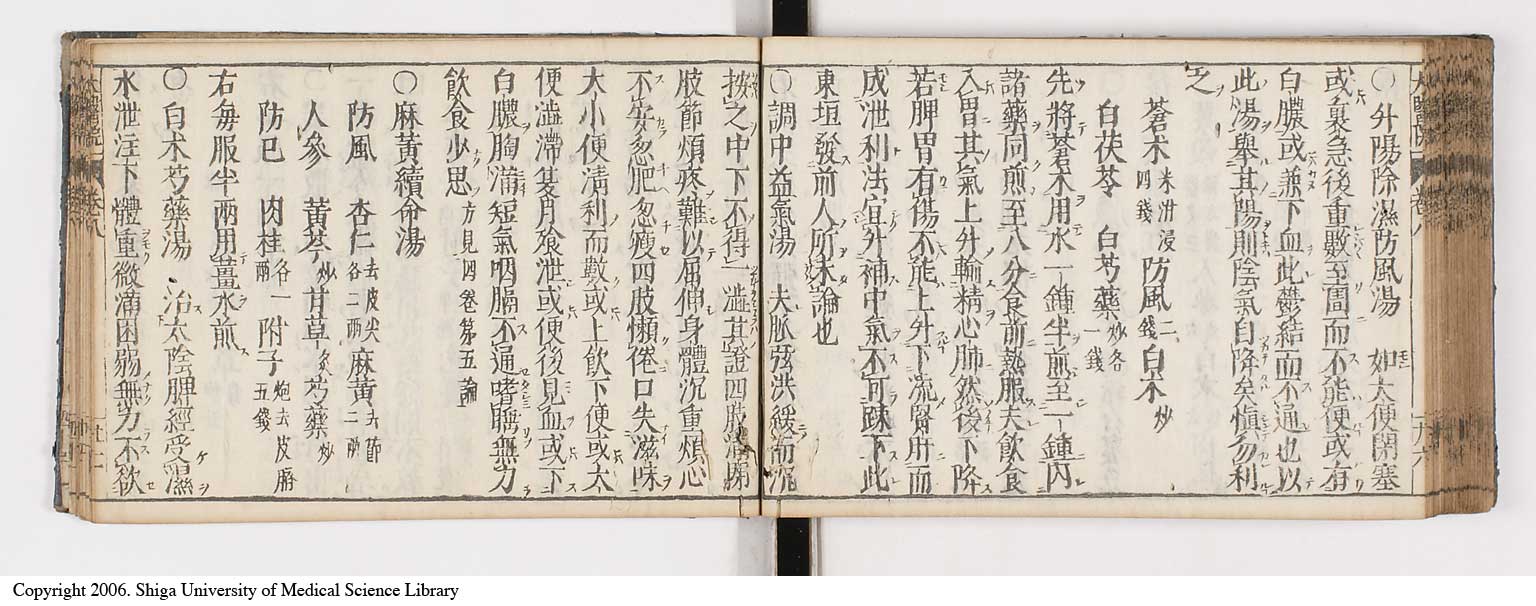 〇升陽除濕防風湯　如大便閉塞
或裏急後重數至圊而不能便或有
白膿或兼下血此鬱結而不通也以
此湯擧其陽則陰氣自降矣愼勿利
之
蒼朮米泔浸四錢　防風二錢　白朮炒
白茯苓　白芍藥炒各一錢
先將蒼朮用水一鍾半煎至一鍾内
諸藥同煎至八分食前熱服夫飲食
入胃其氣上升輸精心肺然後下降
若脾胃有傷不能上升下流腎肝而
成泄利法宜升補中氣不可疎下此
東垣發前人所未論也
〇調中益氣湯　夫脈弦洪緩而沉
按之中下不得一澁其證四肢滿悶
肢節煩疼難以屈伸身體沉重煩心
不安忽肥忽瘦四肢懶倦口失滋味
大小便淸利而數或上飲下便或大
便澁滯隻月飱泄或便後見血或下
白膿胸滿短氣咽膈不通嗜臥無力
飲食少思方見四卷第五論
〇麻黃續命湯
防風　杏仁去皮尖各二兩　麻黃去節二兩
人參　黃芩炒　甘草炙　芍藥炒
防已　肉桂各一兩　附子炮去皮臍五錢
右毎服半兩用薑水煎
〇白朮芍藥湯　治太陰脾經受濕
水泄注下體重微滿困弱無力不欲